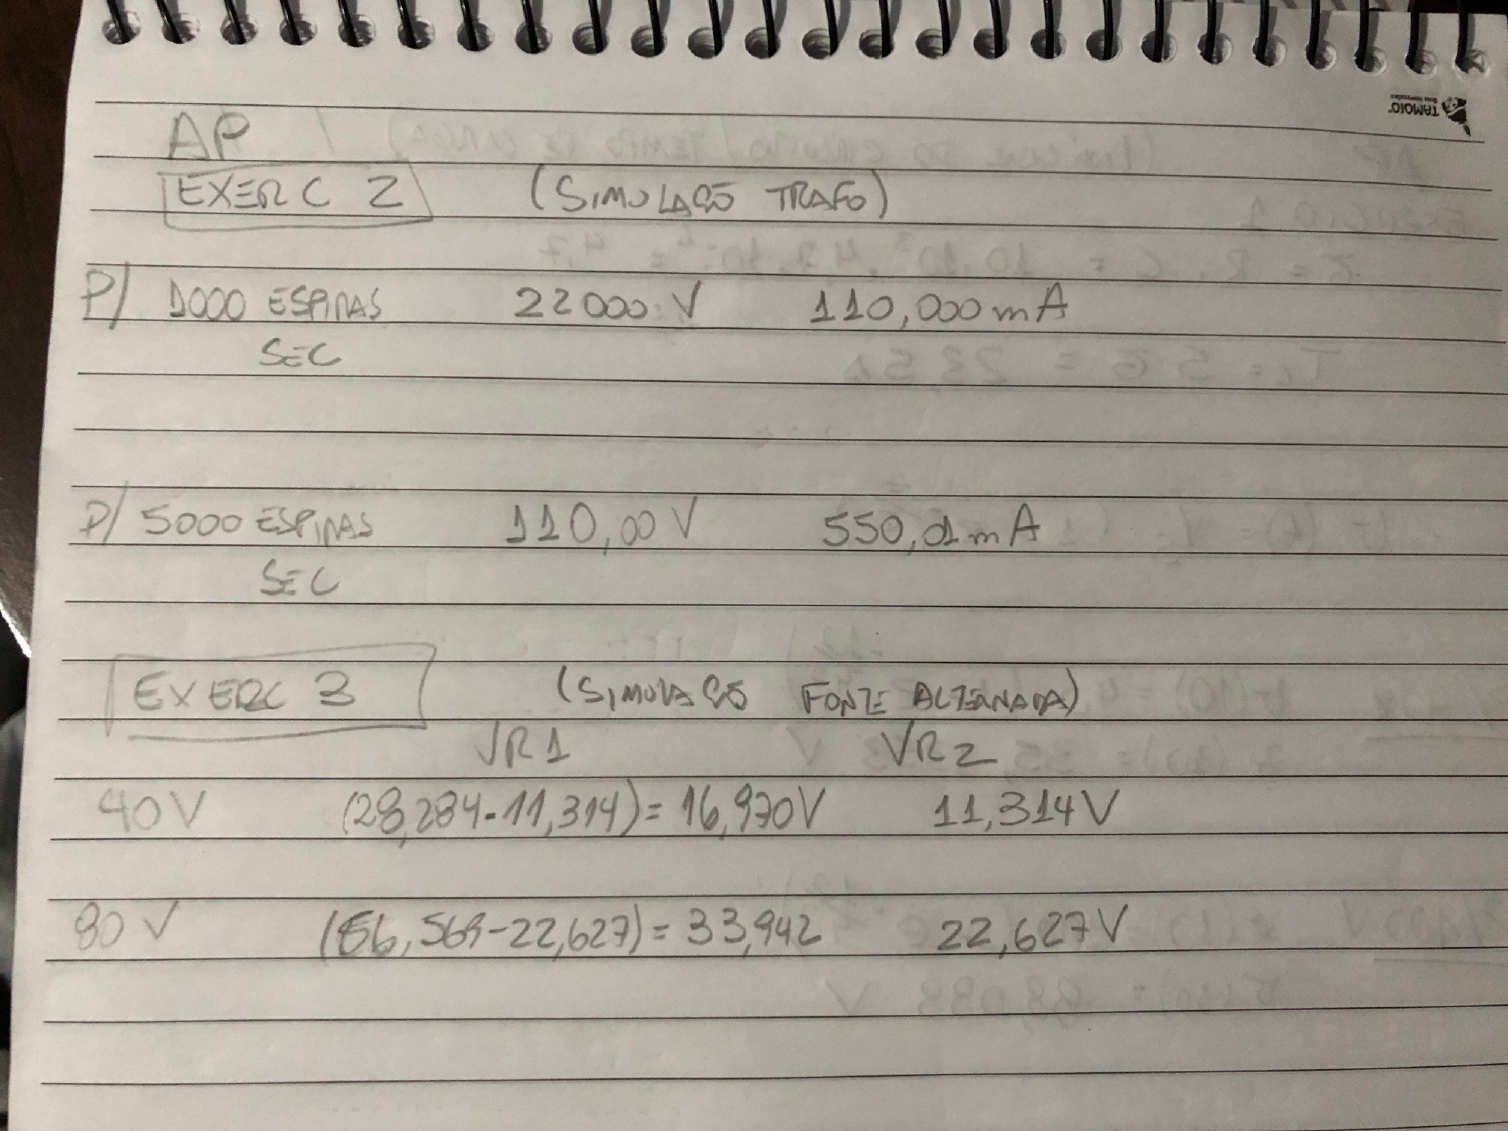 TAMOIO
AP
EXERC 2 (SIMULAÇÃO TRAFO)
P/ 1000 ESPIRAS 22000 V 110,000 mA
SEC
P/ 5000 ESPIRAS 110,00 V 550,01 mA
SEC
EXERC 3 (SIMULAÇÃO FONTE ALTERNADA)
VR1 VR2
40 V (28,284-11,314)= 16,970V 11,314 V
80 V (56,569-22,627)= 33,942 22,627 V